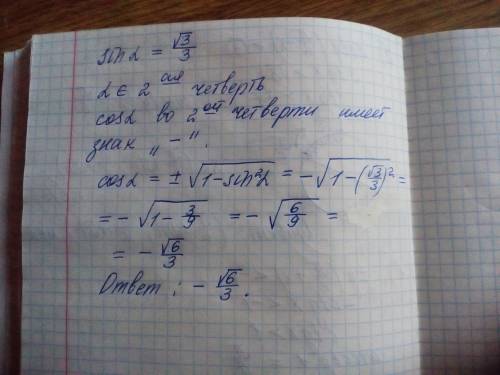 sin α = √3/3
α ∈ 2 ая четверть
cos α во 2 ой четверти имеет
знак „ – ".
cos α = ± √(1 – sin²α) = – √(1 – (√3/3)²) =
= – √(1 – 3/9) = – √(6/9) =
= – √6/3
Ответ : – √6/3.